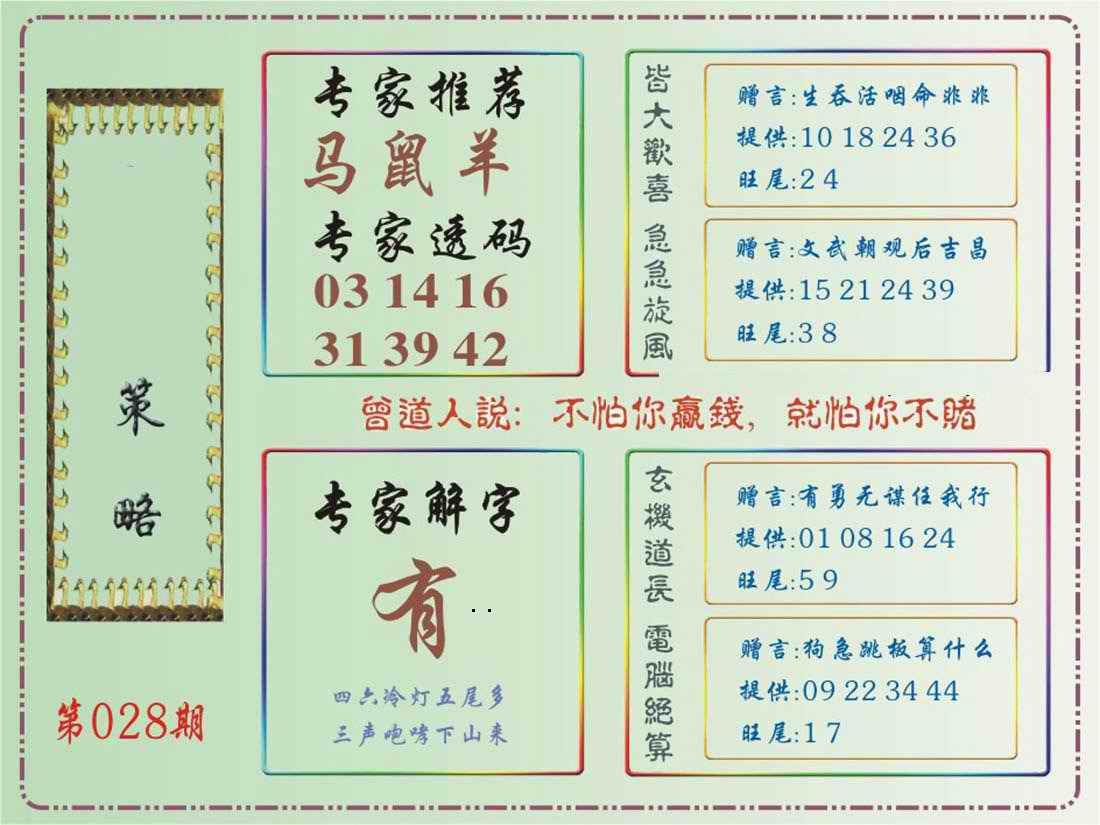 策略
第028期
专家推荐
马鼠羊
专家透码
03 14 16
31 39 42
皆大歡喜
赠言:生吞活咽命非非
提供:10 18 24 36
旺尾:2 4
急急旋風
赠言:文武朝观后吉昌
提供:15 21 24 39
旺尾:3 8
曾道人説: 不怕你贏錢, 就怕你不賭
专家解字
有
四六冷灯五尾多
三声咆哮下山来
玄機道長
赠言:有勇无谋任我行
提供:01 08 16 24
旺尾:5 9
電腦絕算
赠言:狗急跳板算什么
提供:09 22 34 44
旺尾:1 7